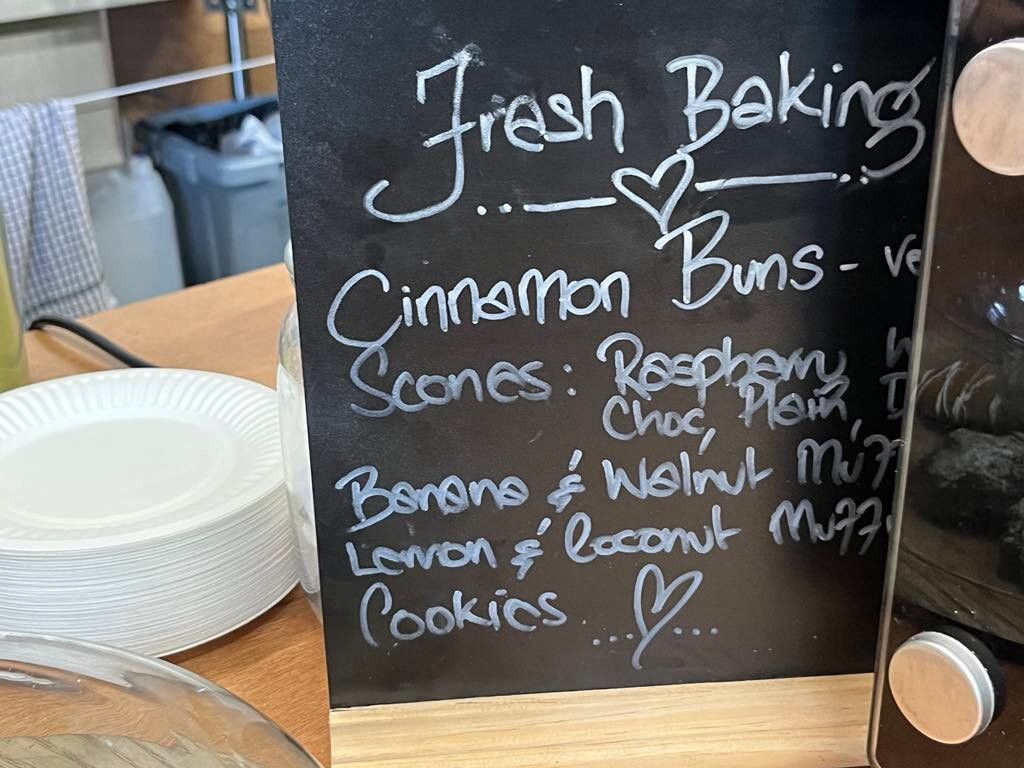 Fresh Baking
Cinnamon Buns - Ve
Scones: Raspberry W
Choc, Plain, D
Banana & Walnut Muff
Lemon & Coconut Muff
Cookies